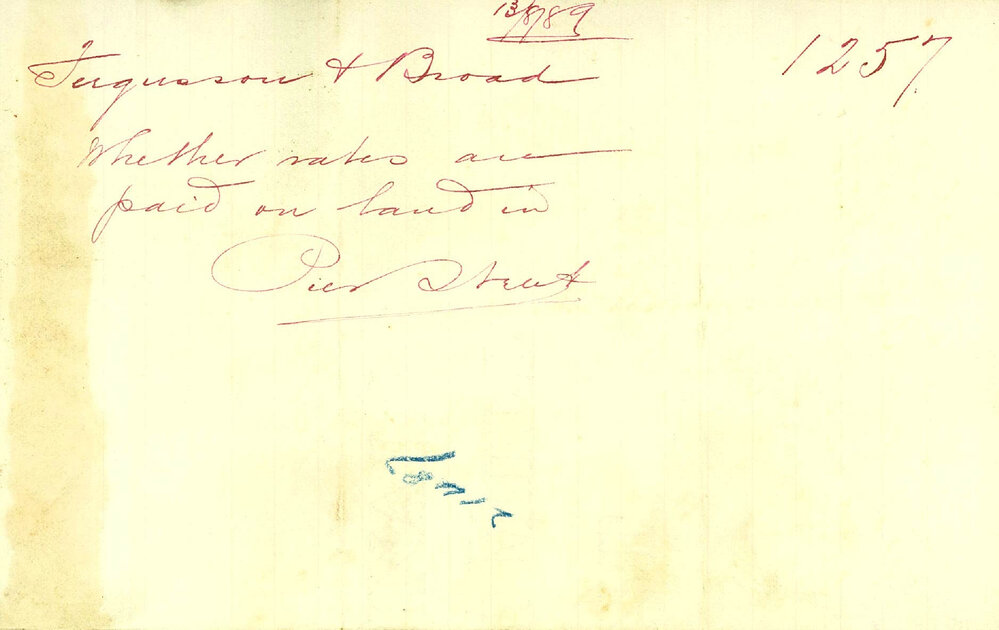 13/8/89
1257
Fergusson & Broad
Whether rates are
paid on land in
Pier Street